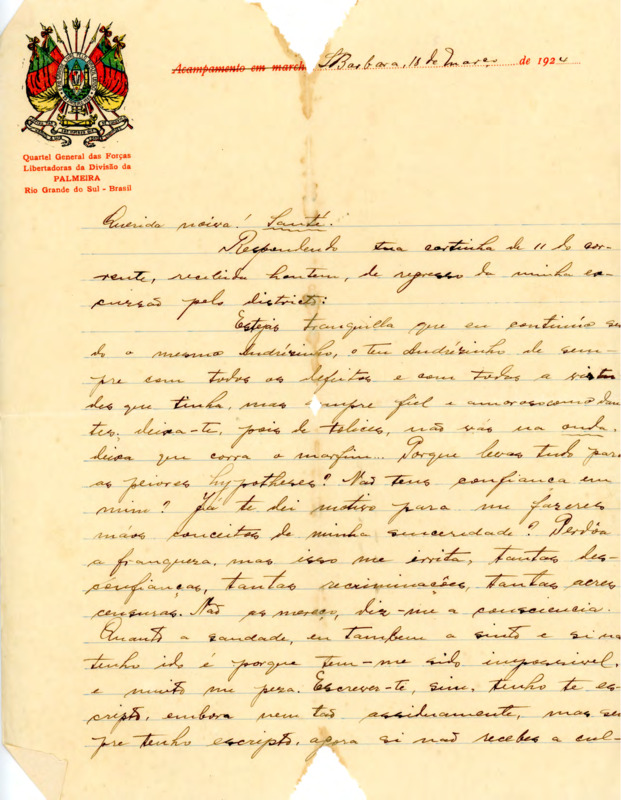 Acampamento em march Sta Barbara, 18 de Março de 1924
Quartel General das Forças
Libertadoras da Divisão da
PALMEIRA
Rio Grande do Sul - Brasil
Querida noiva! Santé!
Respondendo tua cartinha de 11 do cor-
rente, recebida hontem, de regresso da minha ex-
cursão pelo districto:
Estejas tranquilla que eu continúo sen
do o mesmo Andrézinho, o teu Andrézinho de sem-
pre com todos os defeitos e com todas a virtu
des que tinha, mas sempre fiel e amoroso como dan
tes, deixa-te, pois de tolices, não vás na onda,
deixa que corra o marfim... Porque levas tudo para
as peiores hypotheses? Não tens confiança em
mim? Já te dei motivo para me fazeres
máos conceitos de minha sinceridade? Perdôa
a franqueza, mas isso me irrita, tantas des-
confianças, tantas recriminações, tantas acres
censuras. Não as mereço, diz-me a consciencia.
Quanto a saudade, eu tambem a sinto e si não
tenho ido é porque tem-me sido impossivel,
e muito me peza. Escrever-te, sim, tenho te es-
cripto, embora nem tão assiduamente, mas sem
pre tenho escripto, agora si não recebes a cul-